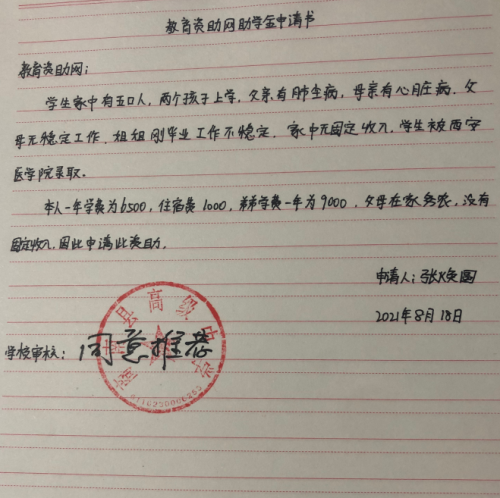 教育资助网助学金申请书
教育资助网：
学生家中有五口人，两个孩子上学，父亲有肺尘病，母亲有心脏病，父
母无稳定工作，姐姐刚毕业工作不稳定，家中无固定收入，学生被西安
医学院录取。
本人一年学费为6500，住宿费1000，弟弟学费一年为9000，父母在家务农，没有
固定收入，因此申请此资助。
申请人：张焕圆
2021年8月18日
学校审核：同意推荐
县高级中学